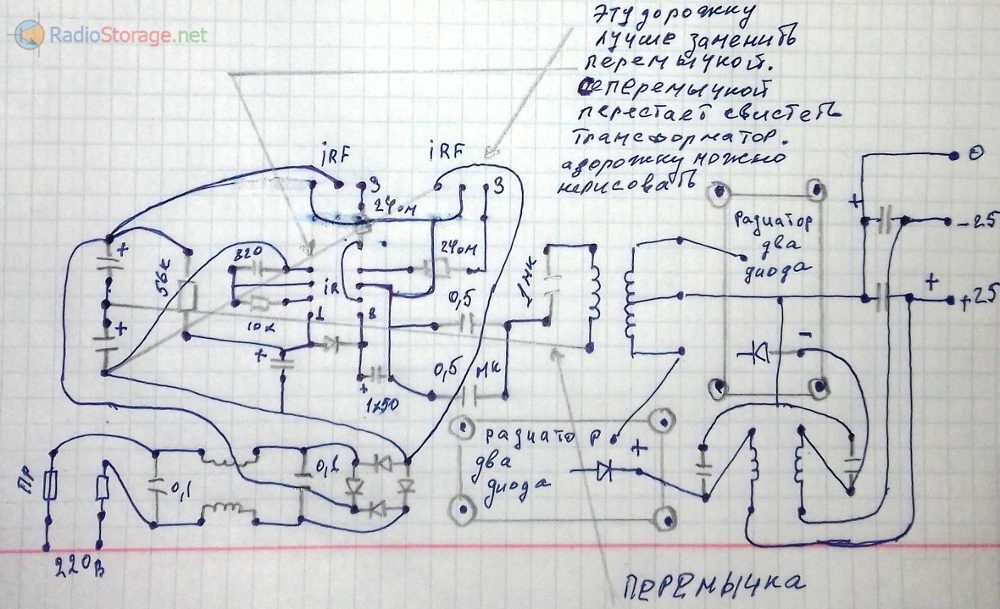 RadioStorage.net
Эту дорожку
лучше заменить
перемычкой.
с перемычкой
перестает свистеть
трансформатор.
а дорожку можно
нарисовать
iRF
iRF
3
3
24ом
24ом
+
56к
820
iR
10к
1
8
+
+
+
1x50
0,5
0,5 мк
1мк
радиатор
два
диода
-
+
0
-25
+
+25
радиатор
два
диода
+
ПР
0,1
0,1
220в
Перемычка